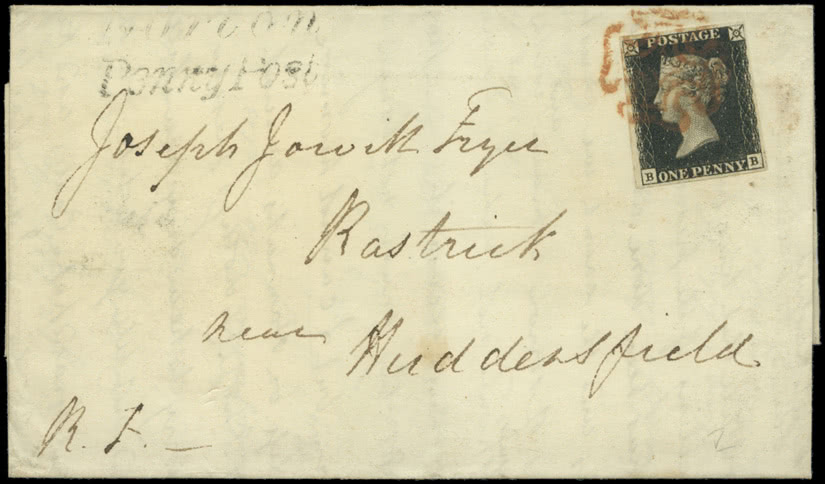 Penny Post
POSTAGE
Joseph Jowitt Fryer
B ONE PENNY B
Rastrick
near
Huddersfield
R. F. —